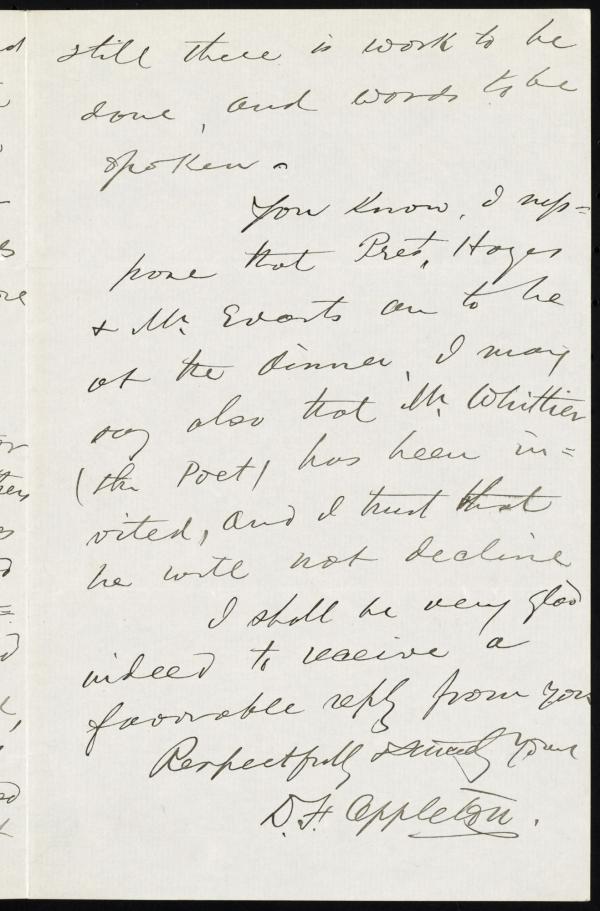 still there is work to be
done, and words to be
spoken.
You know, I sup=
pose that Pres't, Hayes
& Mr. Evarts are to be
at the dinner, I may
say also that Mr. Whittier
(the Poet) has been in=
vited, and I trust that
he will not decline
I shall be very glad
indeed to receive a
favorable reply from you
Respectfully & sincerely Yours
D. F. Appleton.